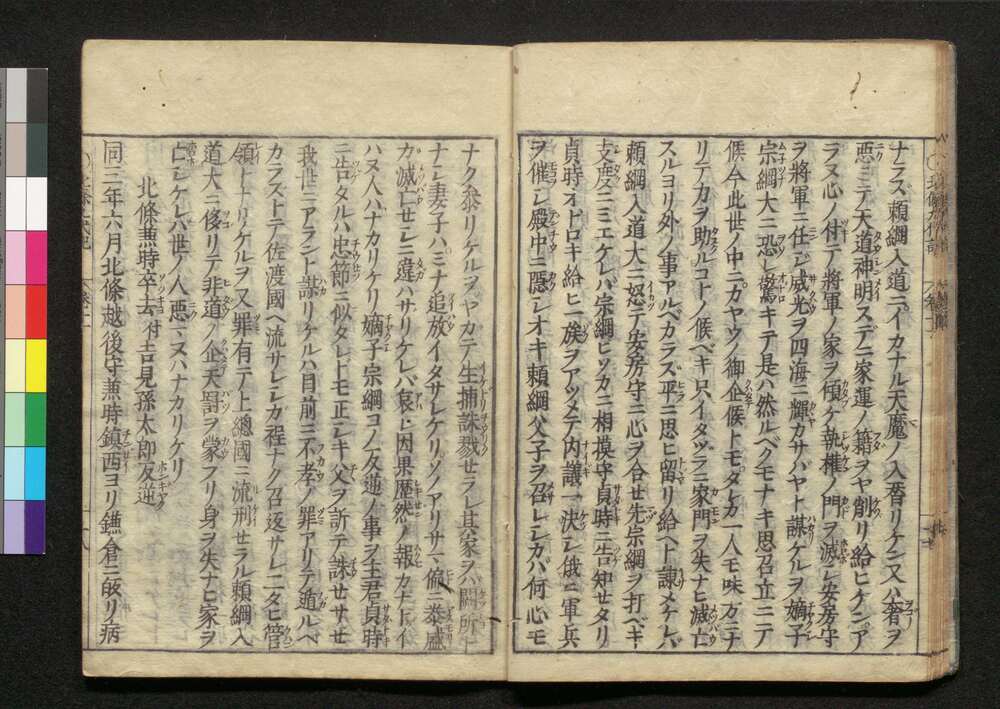 ナラズ頼綱入道ニイカナル天魔ノ入替リケン又ハ奢ヲ
悪ミテ天道神明スデニ家運ノ籍ヲヤ削リ給ヒケンア
ラヌ心ノ付テ將軍ノ家ヲ傾ケ執権ノ門ヲ滅シ安房守
ヲ將軍ニ任ジ威光ヲ四海ニ輝カサバヤト謀ケルヲ嫡子
宗綱大ニ恐レ驚キテ是ハ然ルベクモナキ思召立ニテ
候今此世ノ中ニカヤウノ御企候トモタレカ一人モ味方ニナ
リテカヲ助ルコトノ候ベキ只イタヅラニ家門ヲ失ナヒ滅亡
スルヨリ外ノ事アルベカラズ平ニ思ヒ留リ給ヘト諫メケレバ
頼綱入道大ニ怒テ安房守ニ心ヲ合セ先宗綱ヲ打ベキ
支度ニミエケレバ宗綱ヒソカニ相摸守貞時ニ告知セタリ
貞時オドロキ給ヒ一族ヲアツメテ内議一決シ俄ニ軍兵
ヲ催シ殿中ニ隱シオキ頼綱父子ヲ召レシカバ何心モ
ナク参リケルヲヤカテ生捕誅戮セラレ其家ヲバ闕所ト
ナシ妻子ハミナ追放イタサレケリソノアリサマ偏ニ泰盛
カ滅亡セシニ違ハサリケレバ哀レ因果歴然ノ報カナトイ
ハヌ人ハナカリケリ嫡子宗綱ヨノ父逆ノ事ヲ主君貞時
ニ告タルハ忠節ニ似タレトモ正シキ父ヲ訴テ誅セサセ
我世ニアラント謀リケルハ目前ニ不孝ノ罪アリテ遁ルベ
カラズトテ佐渡國ヘ流サレシカ程ナク召返サレ二タヒ管
領トナリケルヲ又罪有テ上總國ニ流刑セラル頼綱入
道大ニ侈リテ非道ノ企天罸ヲ蒙フリ身ヲ失ナヒ家ヲ
亡シケレバ世ノ人悪マヌハナカリケリ
北條兼時卒去付吉見孫太郎友逆
同三年六月北條越後守兼時鎮西ヨリ鎌倉ニ皈リ病